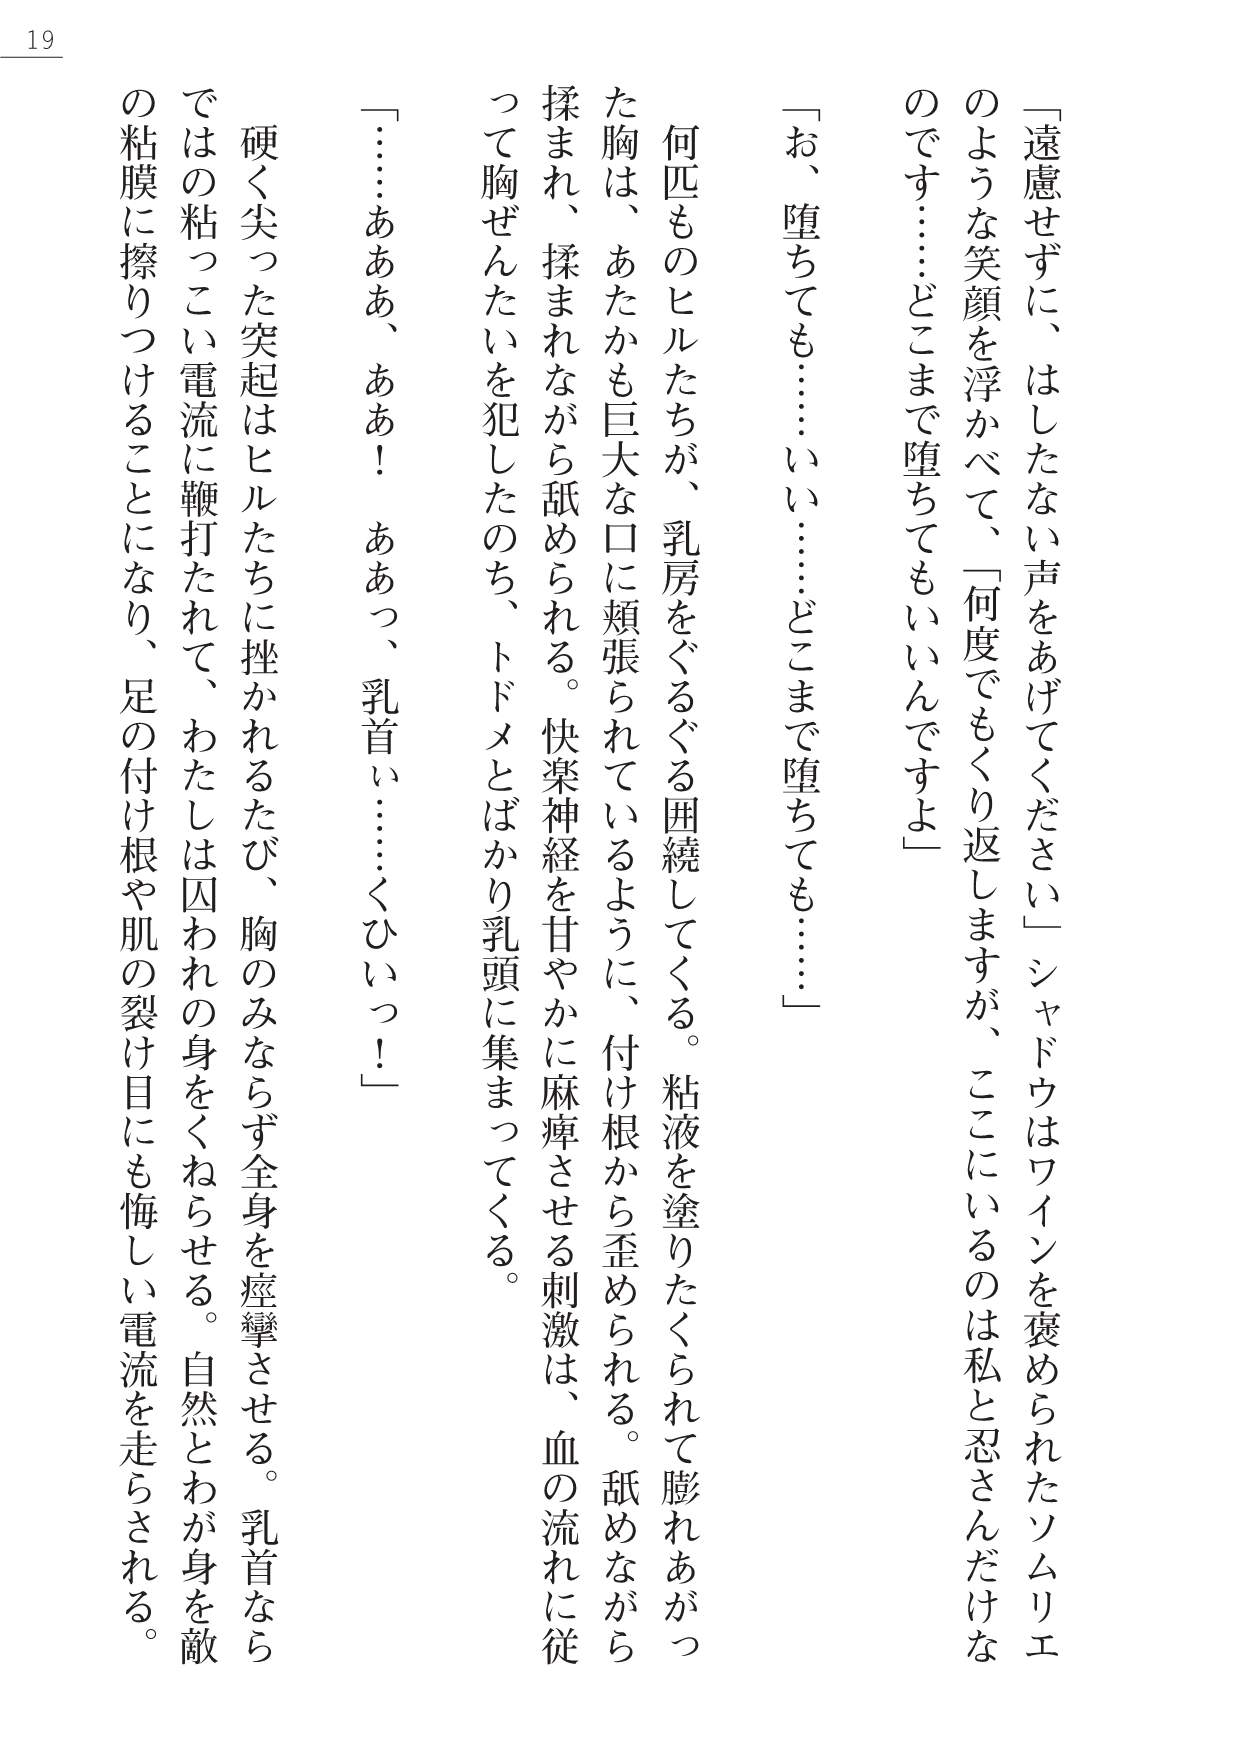 19
「遠慮せずに、はしたない声をあげてください」シャドウはワインを褒められたソムリエ
のような笑顔を浮かべて、「何度でもくり返しますが、ここにいるのは私と忍さんだけな
のです……どこまで堕ちてもいいんですよ」
「お、堕ちても……いい……どこまで堕ちても……」
　何匹ものヒルたちが、乳房をぐるぐる囲繞してくる。粘液を塗りたくられて膨れあがっ
た胸は、あたかも巨大な口に頬張られているように、付け根から歪められる。舐めながら
揉まれ、揉まれながら舐められる。快楽神経を甘やかに麻痺させる刺激は、血の流れに従
って胸ぜんたいを犯したのち、トドメとばかり乳頭に集まってくる。
「……あああ、ああ！　ああっ、乳首ぃ……くひいっ！」
　硬く尖った突起はヒルたちに挫かれるたび、胸のみならず全身を痙攣させる。乳首なら
ではの粘っこい電流に鞭打たれて、わたしは囚われの身をくねらせる。自然とわが身を敵
の粘膜に擦りつけることになり、足の付け根や肌の裂け目にも悔しい電流を走らされる。